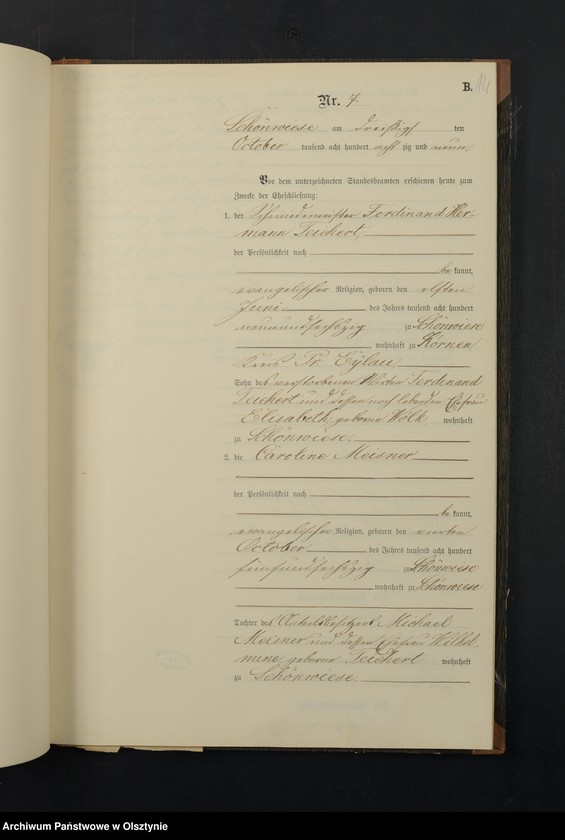 B. 14
Nr. 7
Schönwiese am dreißigsten ten
October tausend acht hundert acht zig und neun.
Vor dem unterzeichneten Standesbeamten erschienen heute zum
Zwecke der Eheschließung:
1. der Schmiedemeister Ferdinand Her-
mann Teichert,
der Persönlichkeit nach
be kannt,
evangelischer Religion, geboren den elften
Juni des Jahres tausend acht hundert
neunundsechszig zu Schönwiese
, wohnhaft zu Körnen
Kreis Pr. Eylau,
Sohn des verstorbenen Wirten Ferdinand
Teichert und dessen noch lebenden Ehefrau
Elisabeth, geborne Wölk wohnhaft
zu Schönwiese.
2. die Caroline Meisner
der Persönlichkeit nach
be kannt,
evangelischer Religion, geboren den vierten
October des Jahres tausend acht hundert
fünfundsechszig zu Schönwiese
, wohnhaft zu Schönwiese
Tochter des Michael
Meisner und dessen Ehefrau Wilhel-
mine, geborne Teichert wohnhaft
zu Schönwiese.
Archiwum Państwowe w Olsztynie